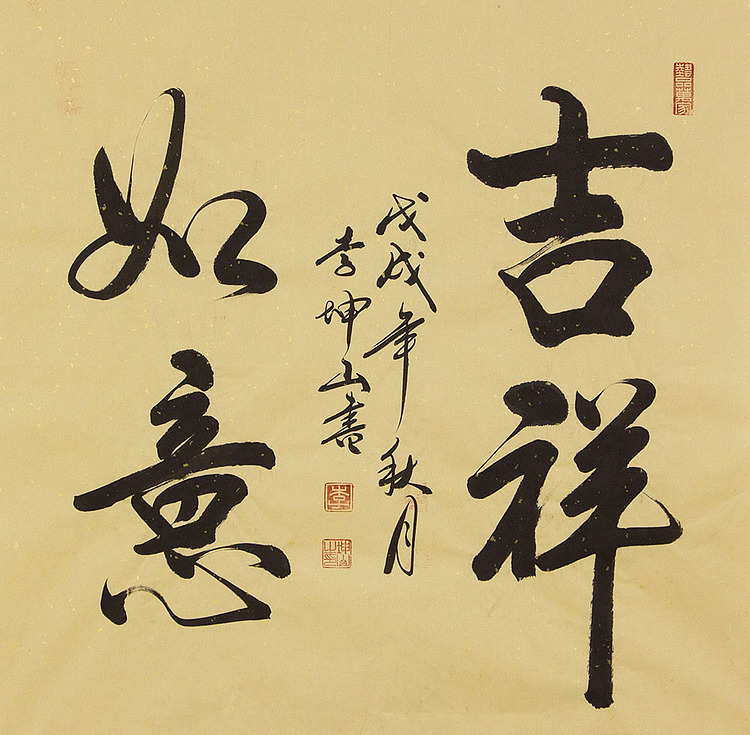 吉祥
如意
戊戌年秋月
李坤山書